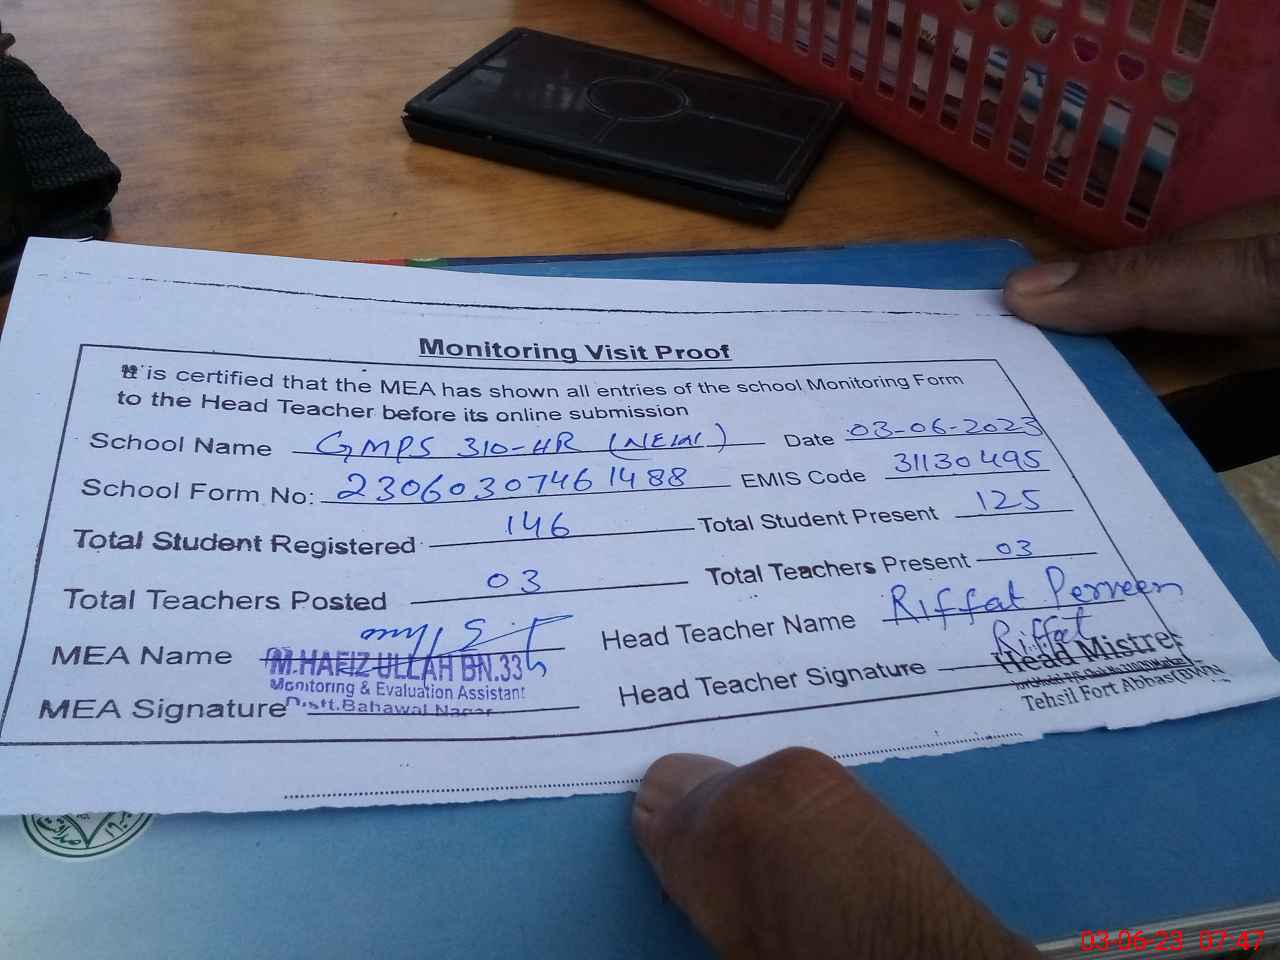 Monitoring Visit Proof
It is certified that the MEA has shown all entries of the school Monitoring Form
to the Head Teacher before its online submission
School Name GMPS 310-HR (NEW) Date 03-06-2023
School Form No: 2306030746 1488 EMIS Code 31130495
Total Student Registered 146 Total Student Present 125
Total Teachers Posted 03 Total Teachers Present 03
MEA Name Head Teacher Name Riffat Perveen
M.HAFIZ ULLAH BN.33
Monitoring & Evaluation Assistant
Distt.Bahawal Nagar
MEA Signature Head Teacher Signature Riffat
Head Mistres
Tehsil Fort Abbas(BWN
03-06-23 07:47